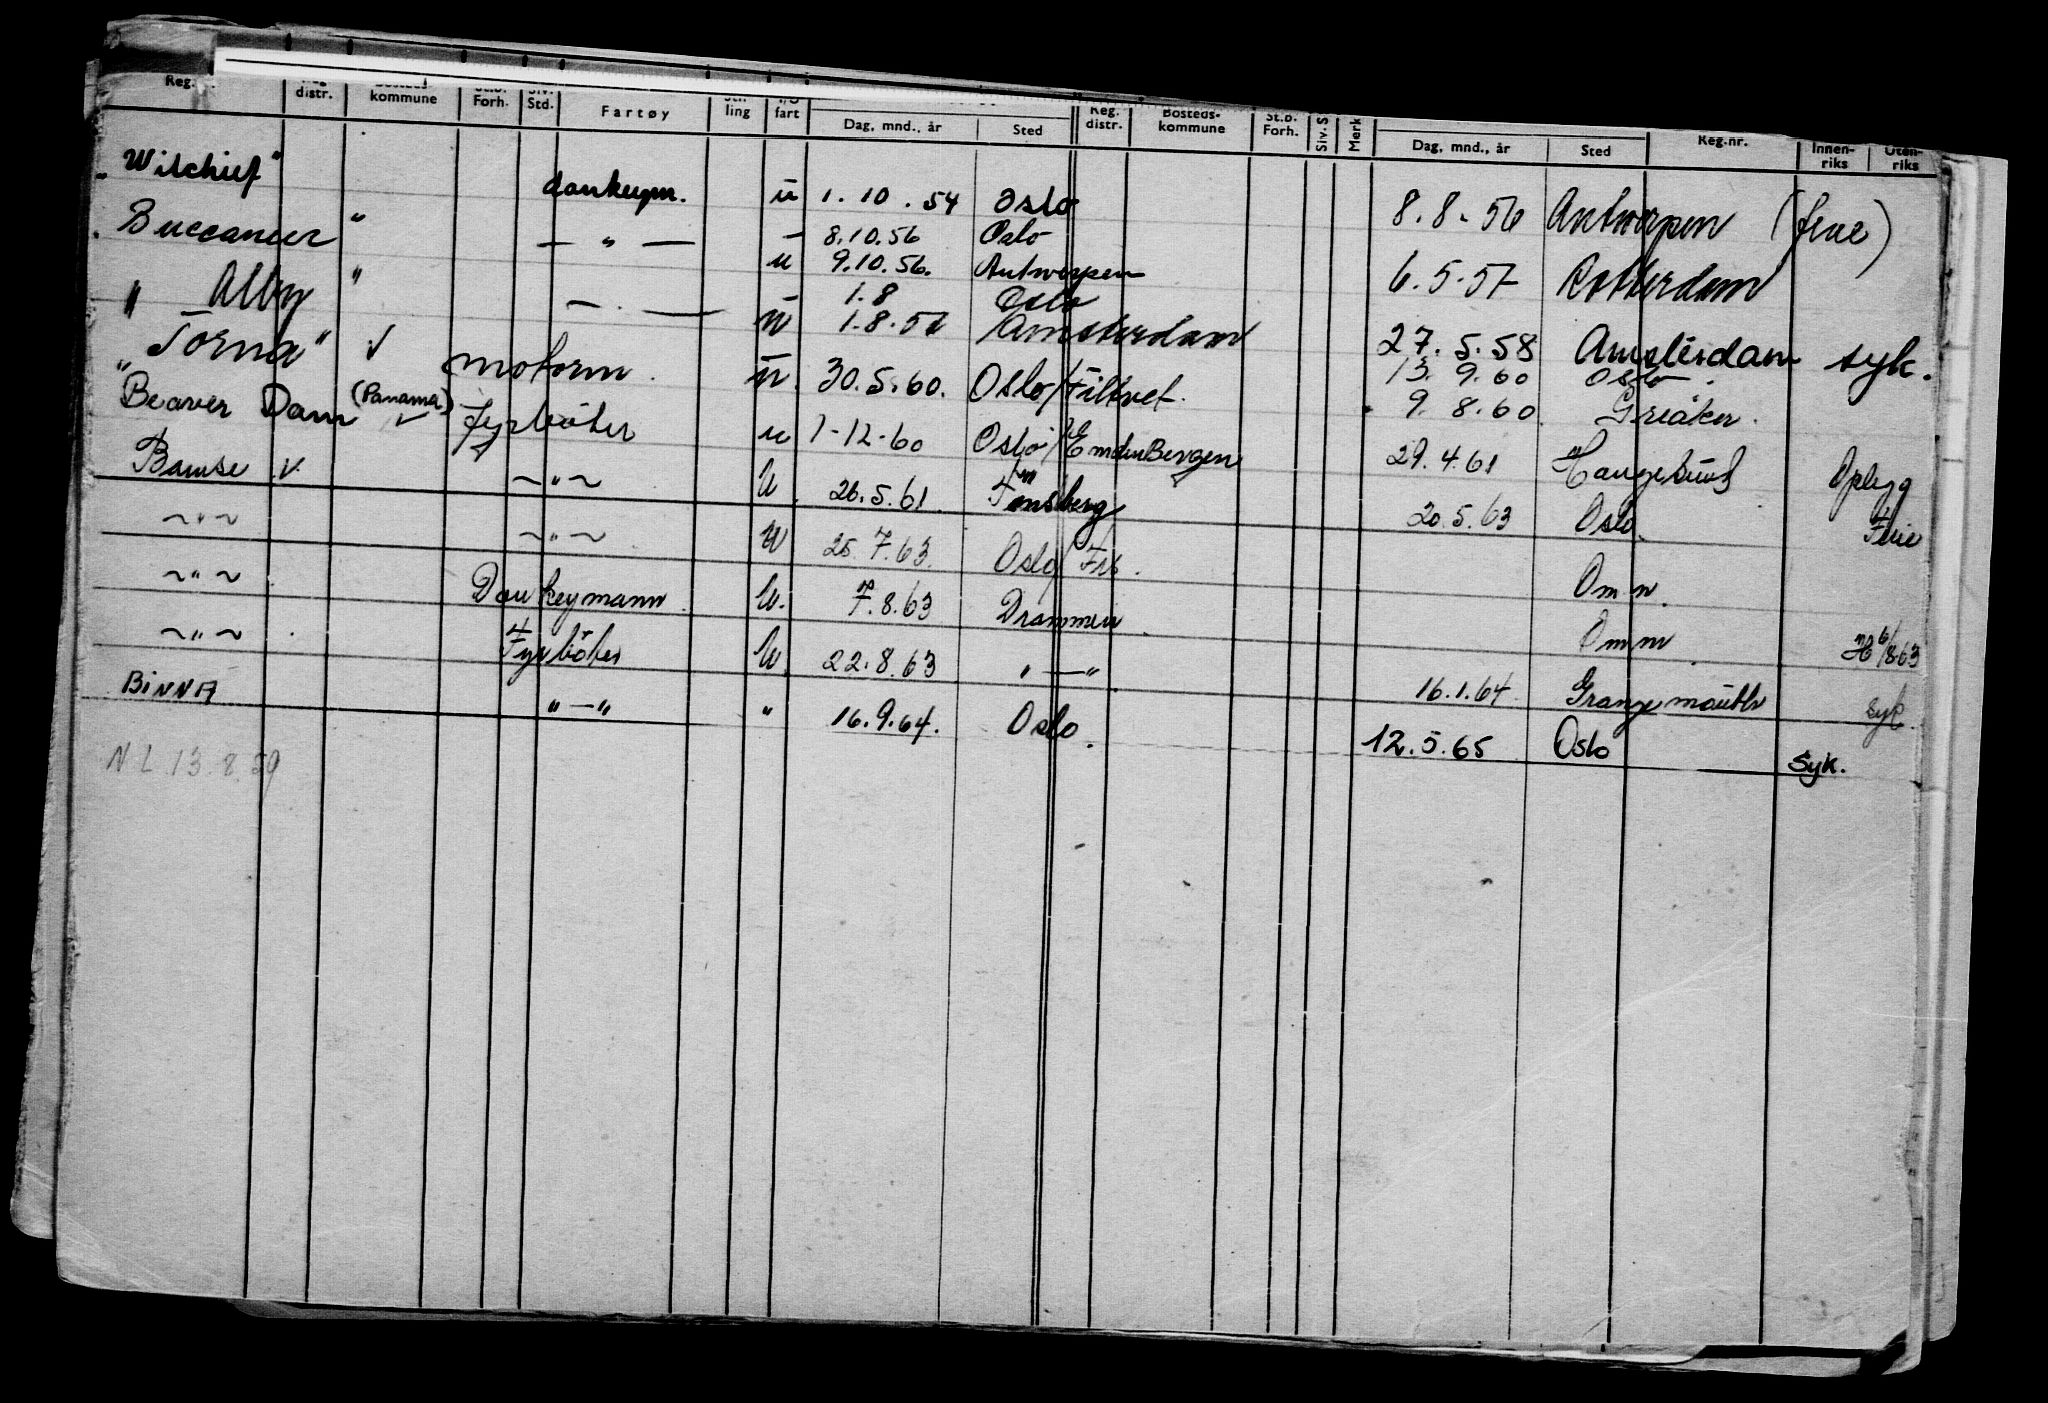 Reg. distr. kommune Forh. Std. Fartøy ling fart Dag, mnd., år Sted Reg. distr. Bosteds-kommune St.b. Forh. Siv. S Merk Dag, mnd., år Sted Reg.nr. Innen-riks Uten-riks
"Wilchief" donkeym. u 1.10.54 Oslo 8.8.56 Antwerpen (ferie)
Buccaneer " — " — 8.10.56 Oslo
u 9.10.56. Antwerpen 6.5.57 Rotterdam
" Alby " — . — 1.8 Oslo
u 1.8.57 Amsterdam 27.5.58 Amsterdam syk.
"Torna" ✓ motorm. u. 30.5.60. Oslo/Filtvet. 13.9.60 Oslo.
9.8.60 Greåker.
Beaver Dam (Panama) ✓ fyrbøter u 1-12-60 Oslo/Emden Bergen 29.4.61 Haugesund Oplegg
Bamse v. ~"~ U 26.5.61. Tønsberg 20.5.63 Oslo. Ferie
~"~ ~"~ U 25.7.63. Oslo/Frb. Omm.
~"~ Donkeymann U. 7.8.63 Drammen Omm
~"~ Fyrbøter U. 22.8.63 " — " 16.1.64. Grangemouth syk.
BINNA " — " " 16.9.64. Oslo. 12.5.65 Oslo Syk.
N L. 13.8.59